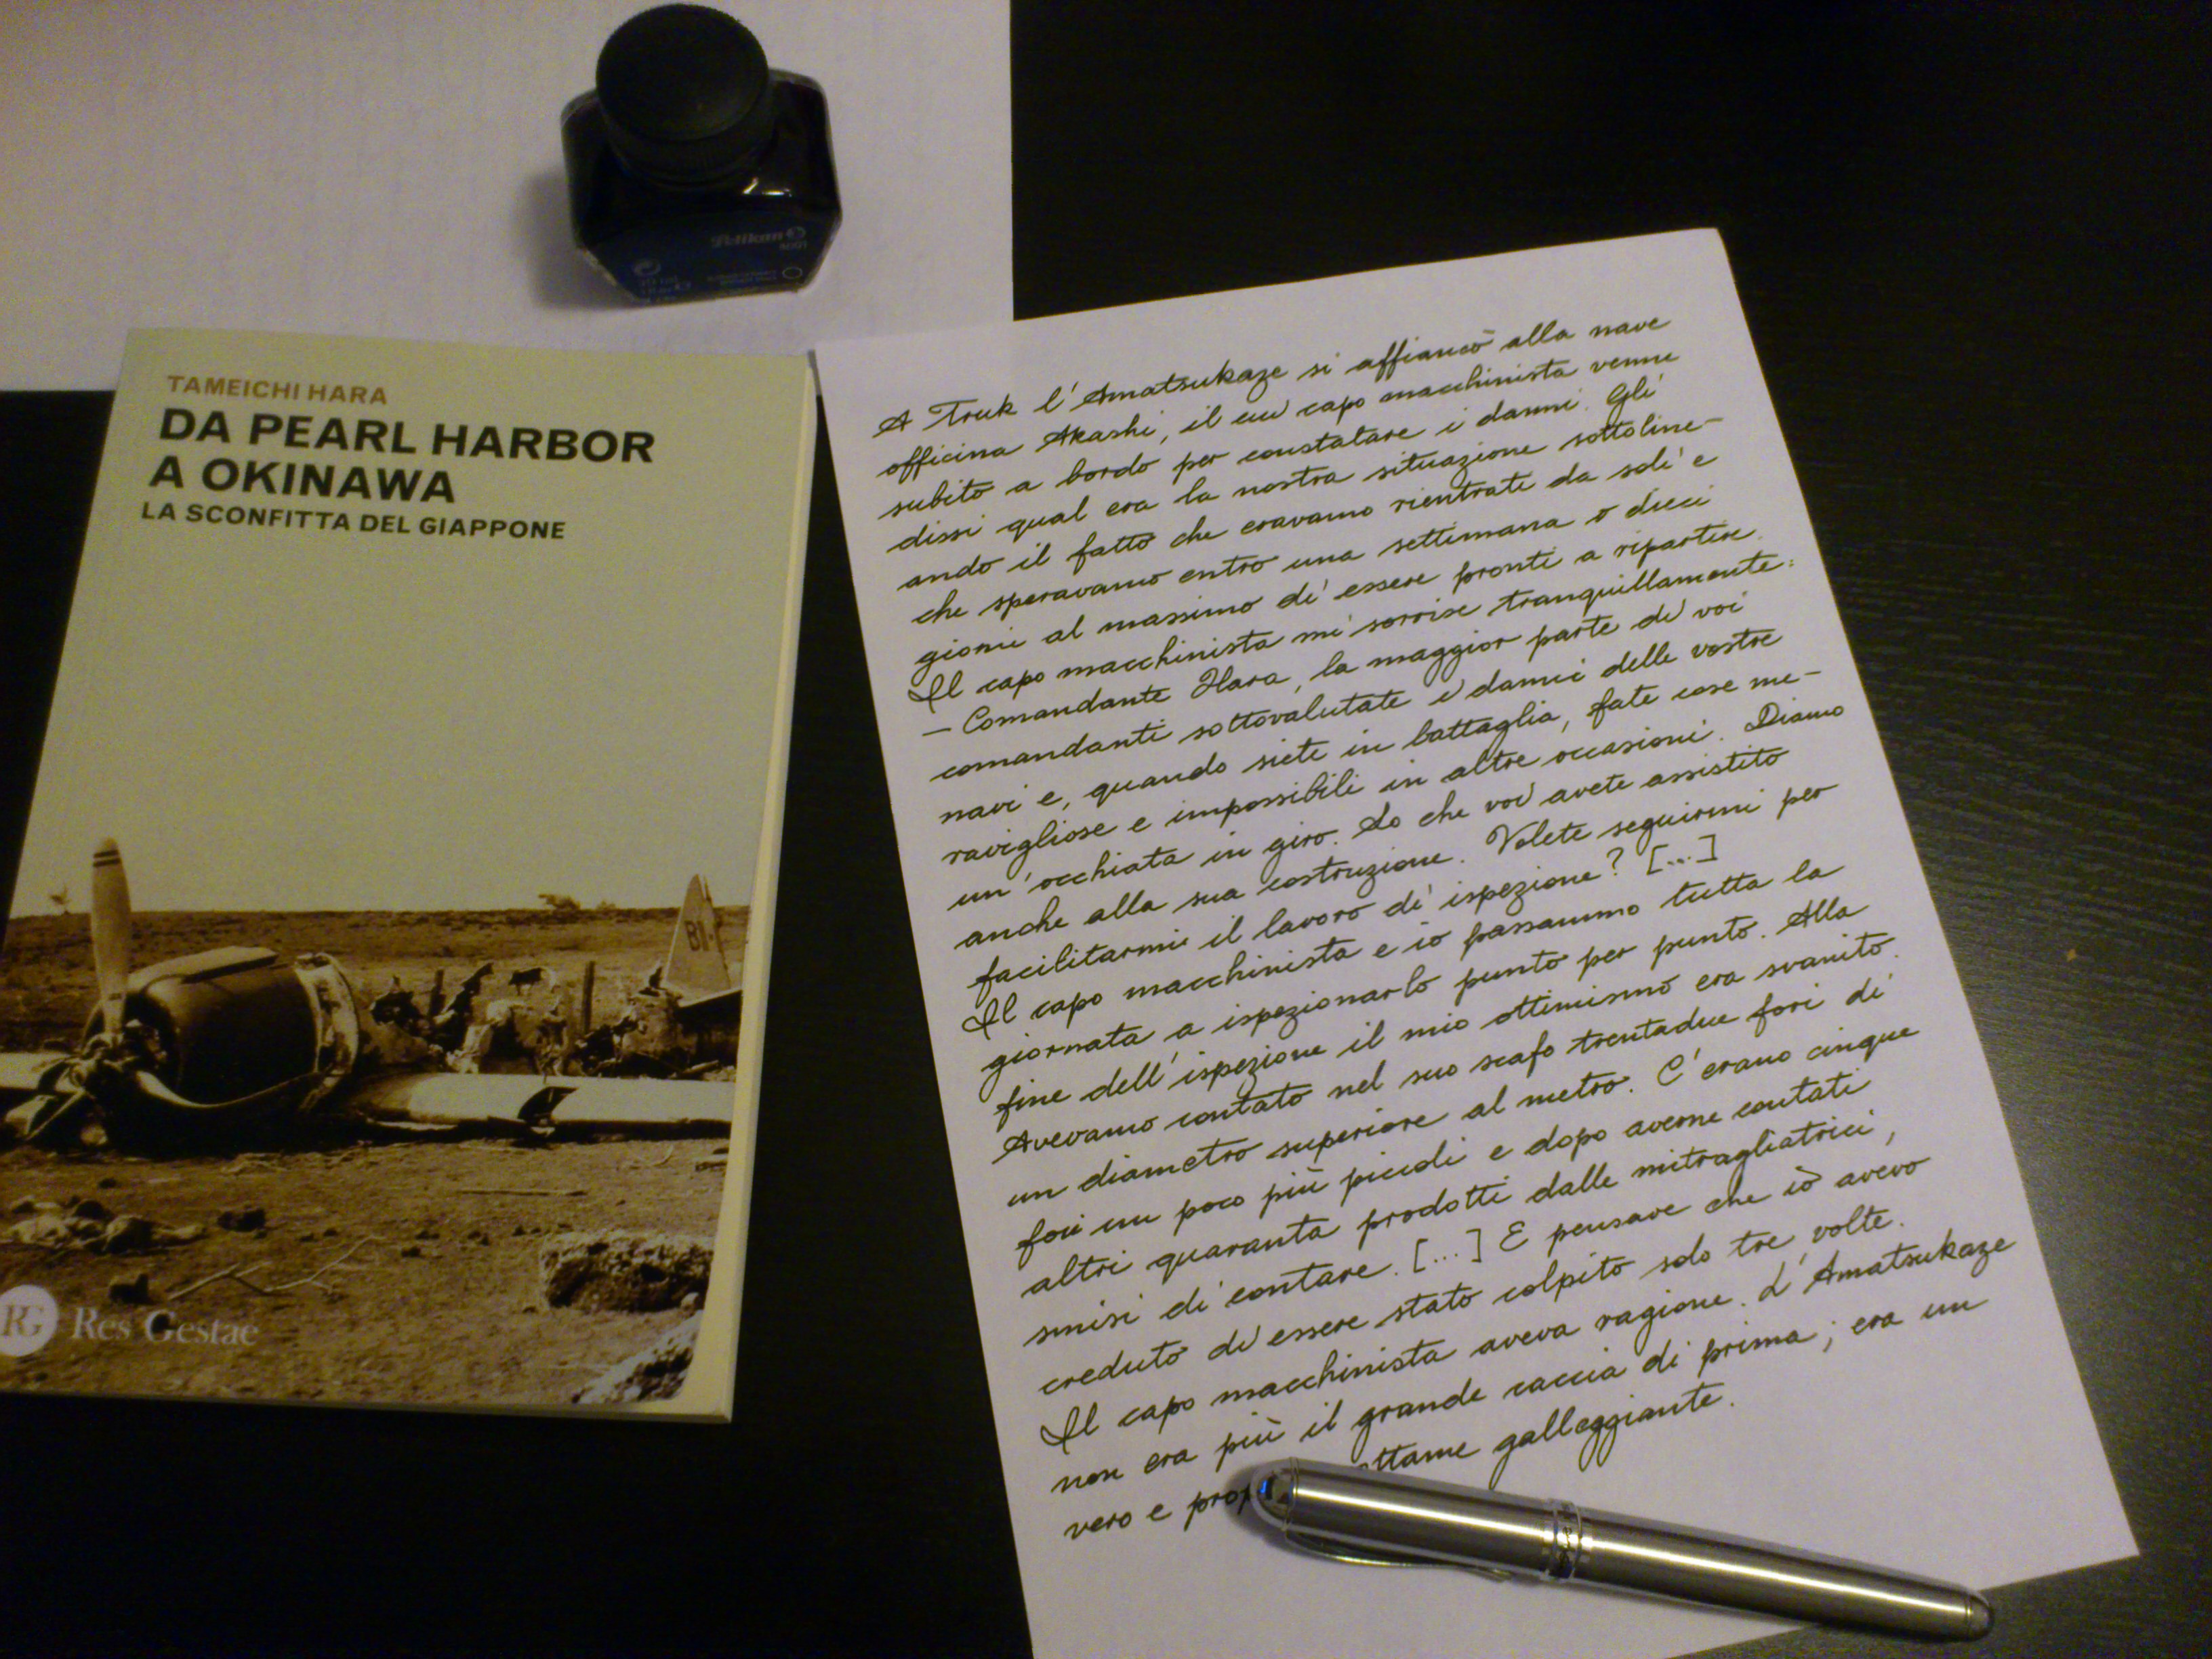 Pelikan
TAMEICHI HARA
DA PEARL HARBOR
A OKINAWA
LA SCONFITTA DEL GIAPPONE
BI-
RG Res Gestae
A Truk l'Amatsukaze si affiancò alla nave
officina Akashi, il cui capo macchinista venne
subito a bordo per constatare i danni. Gli
dissi qual era la nostra situazione sottoline-
ando il fatto che eravamo rientrati da soli e
che speravamo entro una settimana o dieci
giorni al massimo di essere pronti a ripartire.
Il capo macchinista mi sorrise tranquillamente:
– Comandante Hara, la maggior parte di voi
comandanti sottovalutate i danni delle vostre
navi e, quando siete in battaglia, fate cose me-
ravigliose e impossibili in altre occasioni. Diamo
un'occhiata in giro. So che voi avete assistito
anche alla sua costruzione. Volete seguirmi per
facilitarmi il lavoro di ispezione? [...]
Il capo macchinista e io passammo tutta la
giornata a ispezionarlo punto per punto. Alla
fine dell'ispezione il mio ottimismo era svanito.
Avevamo contato nel suo scafo trentadue fori di
un diametro superiore al metro. C'erano cinque
fori un poco più piccoli e dopo averne contati
altri quaranta prodotti dalle mitragliatrici,
smisi di contare. [...] E pensare che io avevo
creduto di essere stato colpito solo tre volte.
Il capo macchinista aveva ragione. L'Amatsukaze
non era più il grande caccia di prima; era un
vero e prop ottame galleggiante.